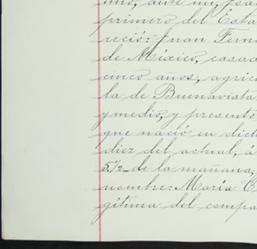 uno, ante mi, Jua
primero del Esta
reció: Juan Fern
de México, casad
cinco años, agric
la de Buenavista
y medio, y presentó
que nació en dich
diez del actual, á
5 1/2 de la mañana,
nombre: María C
gítima del compa